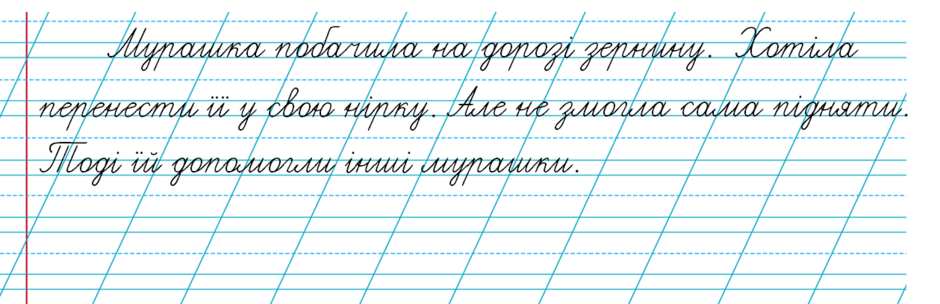 Мурашка побачила на дорозі зернину. Хотіла
перенести її у свою нірку. Але не змогла сама підняти.
Тоді їй допомогли інші мурашки.